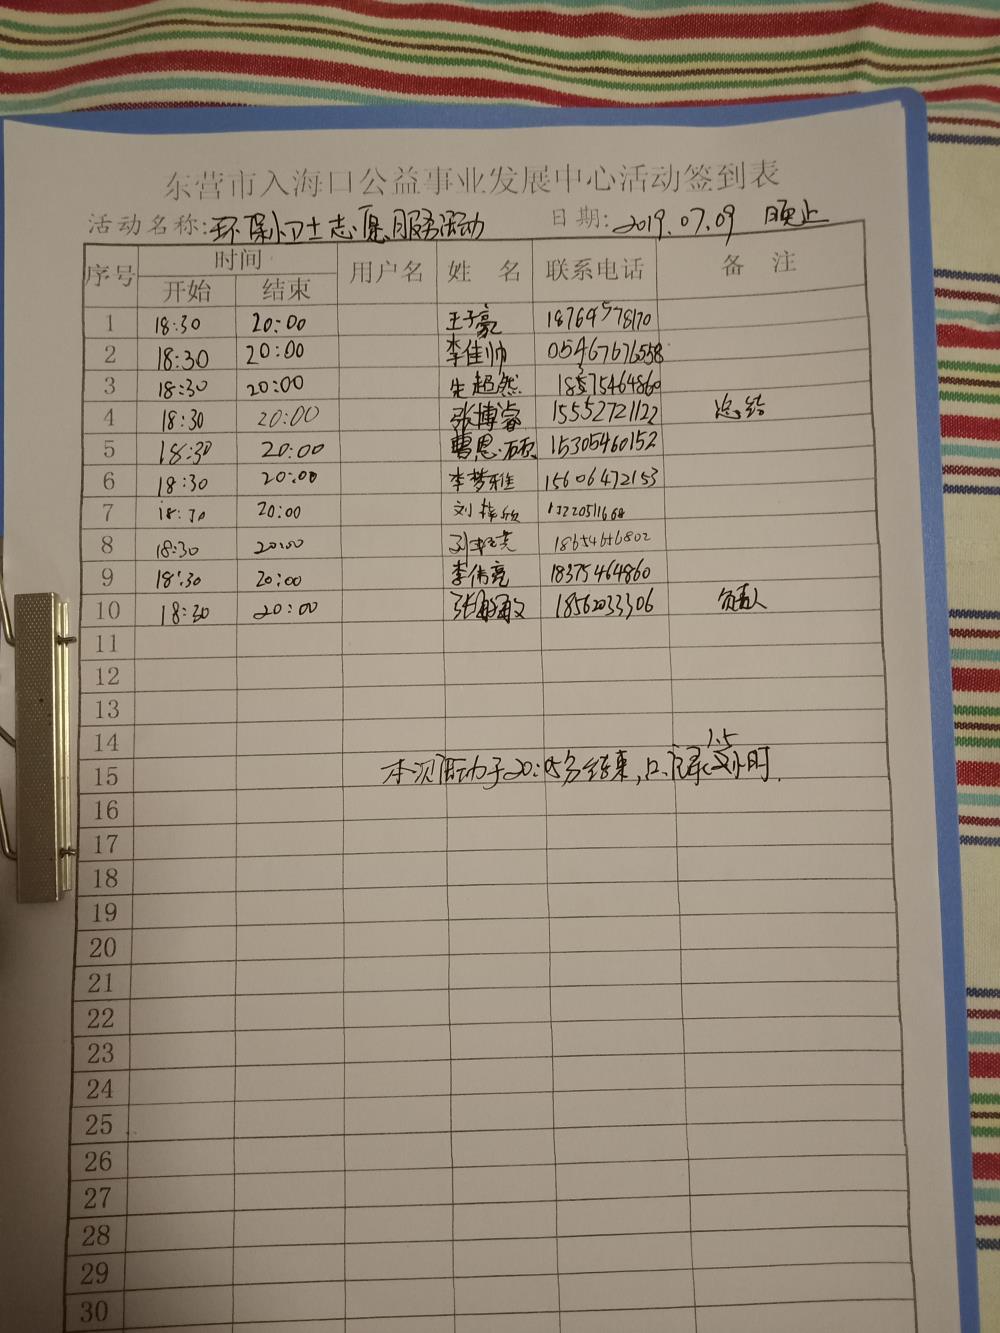 东营市入海口公益事业发展中心活动签到表
活动名称:环保小卫士志愿服务活动 日期:2019.07.09 晚上
序号 时间 用户名 姓名 联系电话 备注
开始 结束
1 18:30 20:00 王子豪 18769578170
2 18:30 20:00 李佳帅 05467676558
3 18:30 20:00 超然 18375464860
4 18:30 20:00 张博睿 15552721122 总结
5 18:30 20:00 曹恩硕 15305460152
6 18:30 20:00 李梦雅 15606472153
7 18:30 20:00 刘梓欣
8 18:30 20:00 18654646802
9 18:30 20:00 李伟亮 18375464860
10 18:30 20:00 张敏敏 18562033306 负责人
11
12
13
14 1.5
15 本次活动于20:05分结束,只记录小时.
16
17
18
19
20
21
22
23
24
25
26
27
28
29
30